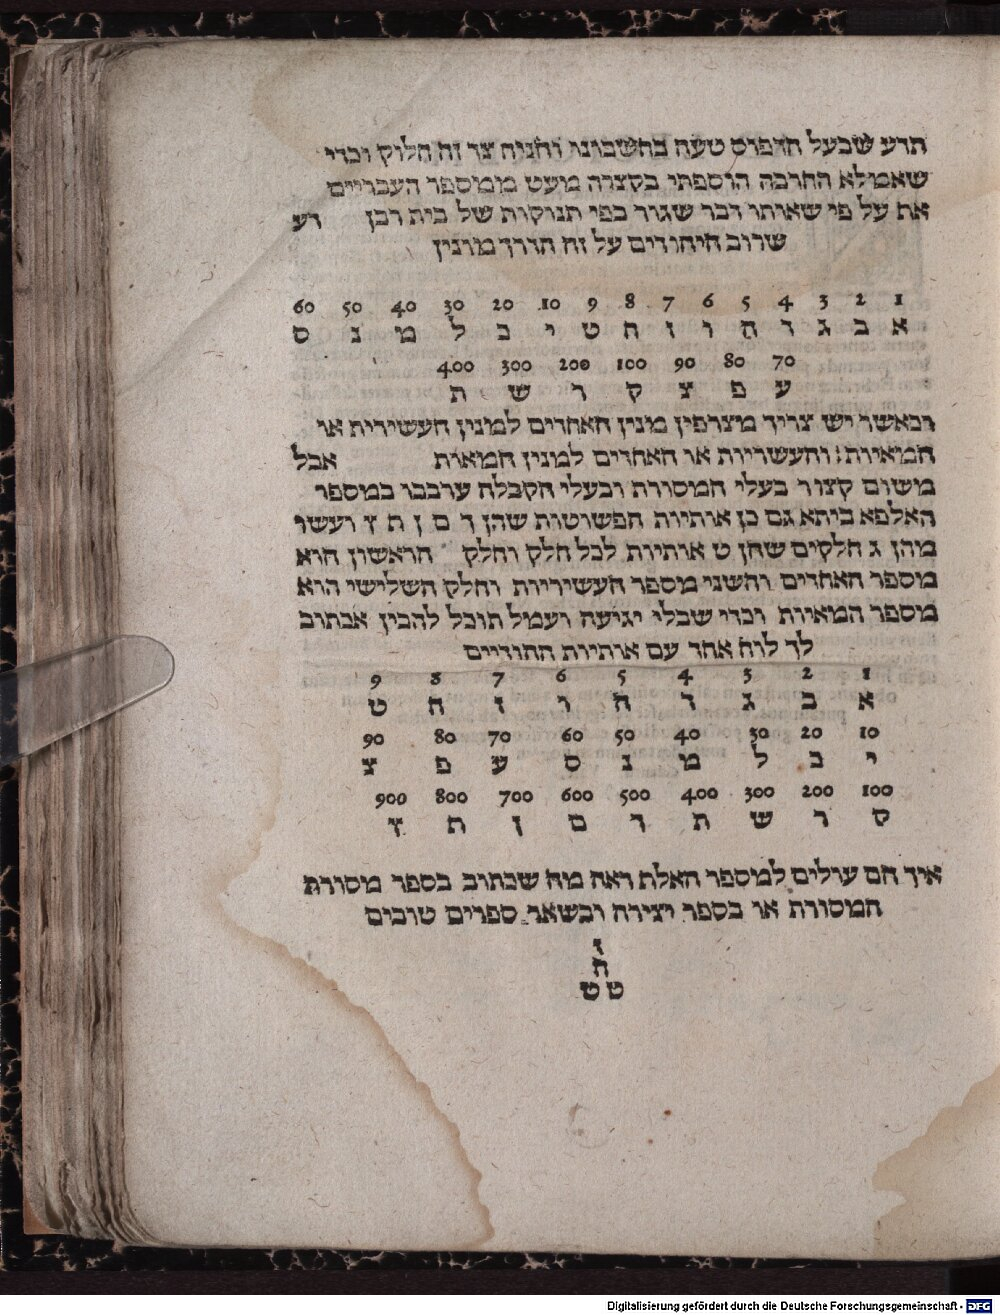 תדע שבעל הדפוס טעה בחשבונו והניח צד זה חלוק וכדי
שאמלא החרבה הוספתי בקצרה מעט ממספר העבריים
את על פי שאותו דבר שגור בפי תנוקות של בית רבן דע
שרוב היהודים על זה הדרך מונין
60 50 40 30 20 10 9 8 7 6 5 4 3 2 1
א ב ג ד ה ו ז ח ט י כ ל מ נ ס
400 300 200 100 90 80 70
ע פ צ ק ר ש ת
וכאשר יש צריך מצרפין מנין האחדים למנין העשירית או
המאיות: והעשריות או האחדים למנין המאות אבל
משום קצור בעלי המסורת ובעלי הקבלה ערבבו במספר
האלפא ביתא גם כן אותיות הפשוטות שהן ך ם ן ף ץ ועשו
מהן ג חלקים שהן ט אותיות לכל חלק וחלק הראשון הוא
מספר האחדים והשני מספר העשיריות וחלק השלישי הוא
מספר המאיות וכדי שבלי יגיעה ועמל תוכל להבין אכתוב
לך לוח אחד עם אותיות ההודיים
9 8 7 6 5 4 3 2 1
א ב ג ד ה ו ז ח ט
90 80 70 60 50 40 30 20 10
י כ ל מ נ ס ע פ צ
900 800 700 600 500 400 300 200 100
ק ר ש ת ך ם ן ף ץ
איך הם עולים למספר האלה ראה מה שכתוב בספר מסורת
המסורת או בספר יצירה ובשאר ספרים טובים
ז
ח
ט ט
Digitalisierung gefördert durch die Deutsche Forschungsgemeinschaft - DFG